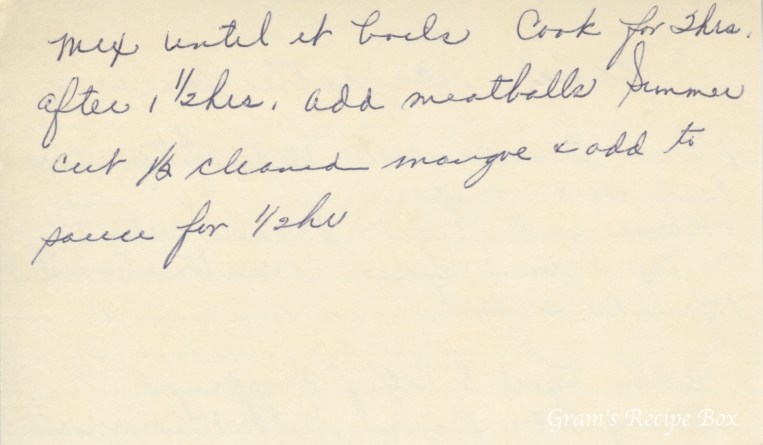 Mix until it boils Cook for 2hrs.
after 1 1/2hrs. add meatballs Simmer
cut 1/2 cleaned mangoe & add to
sauce for 1/2hr
Gram's Recipe Box